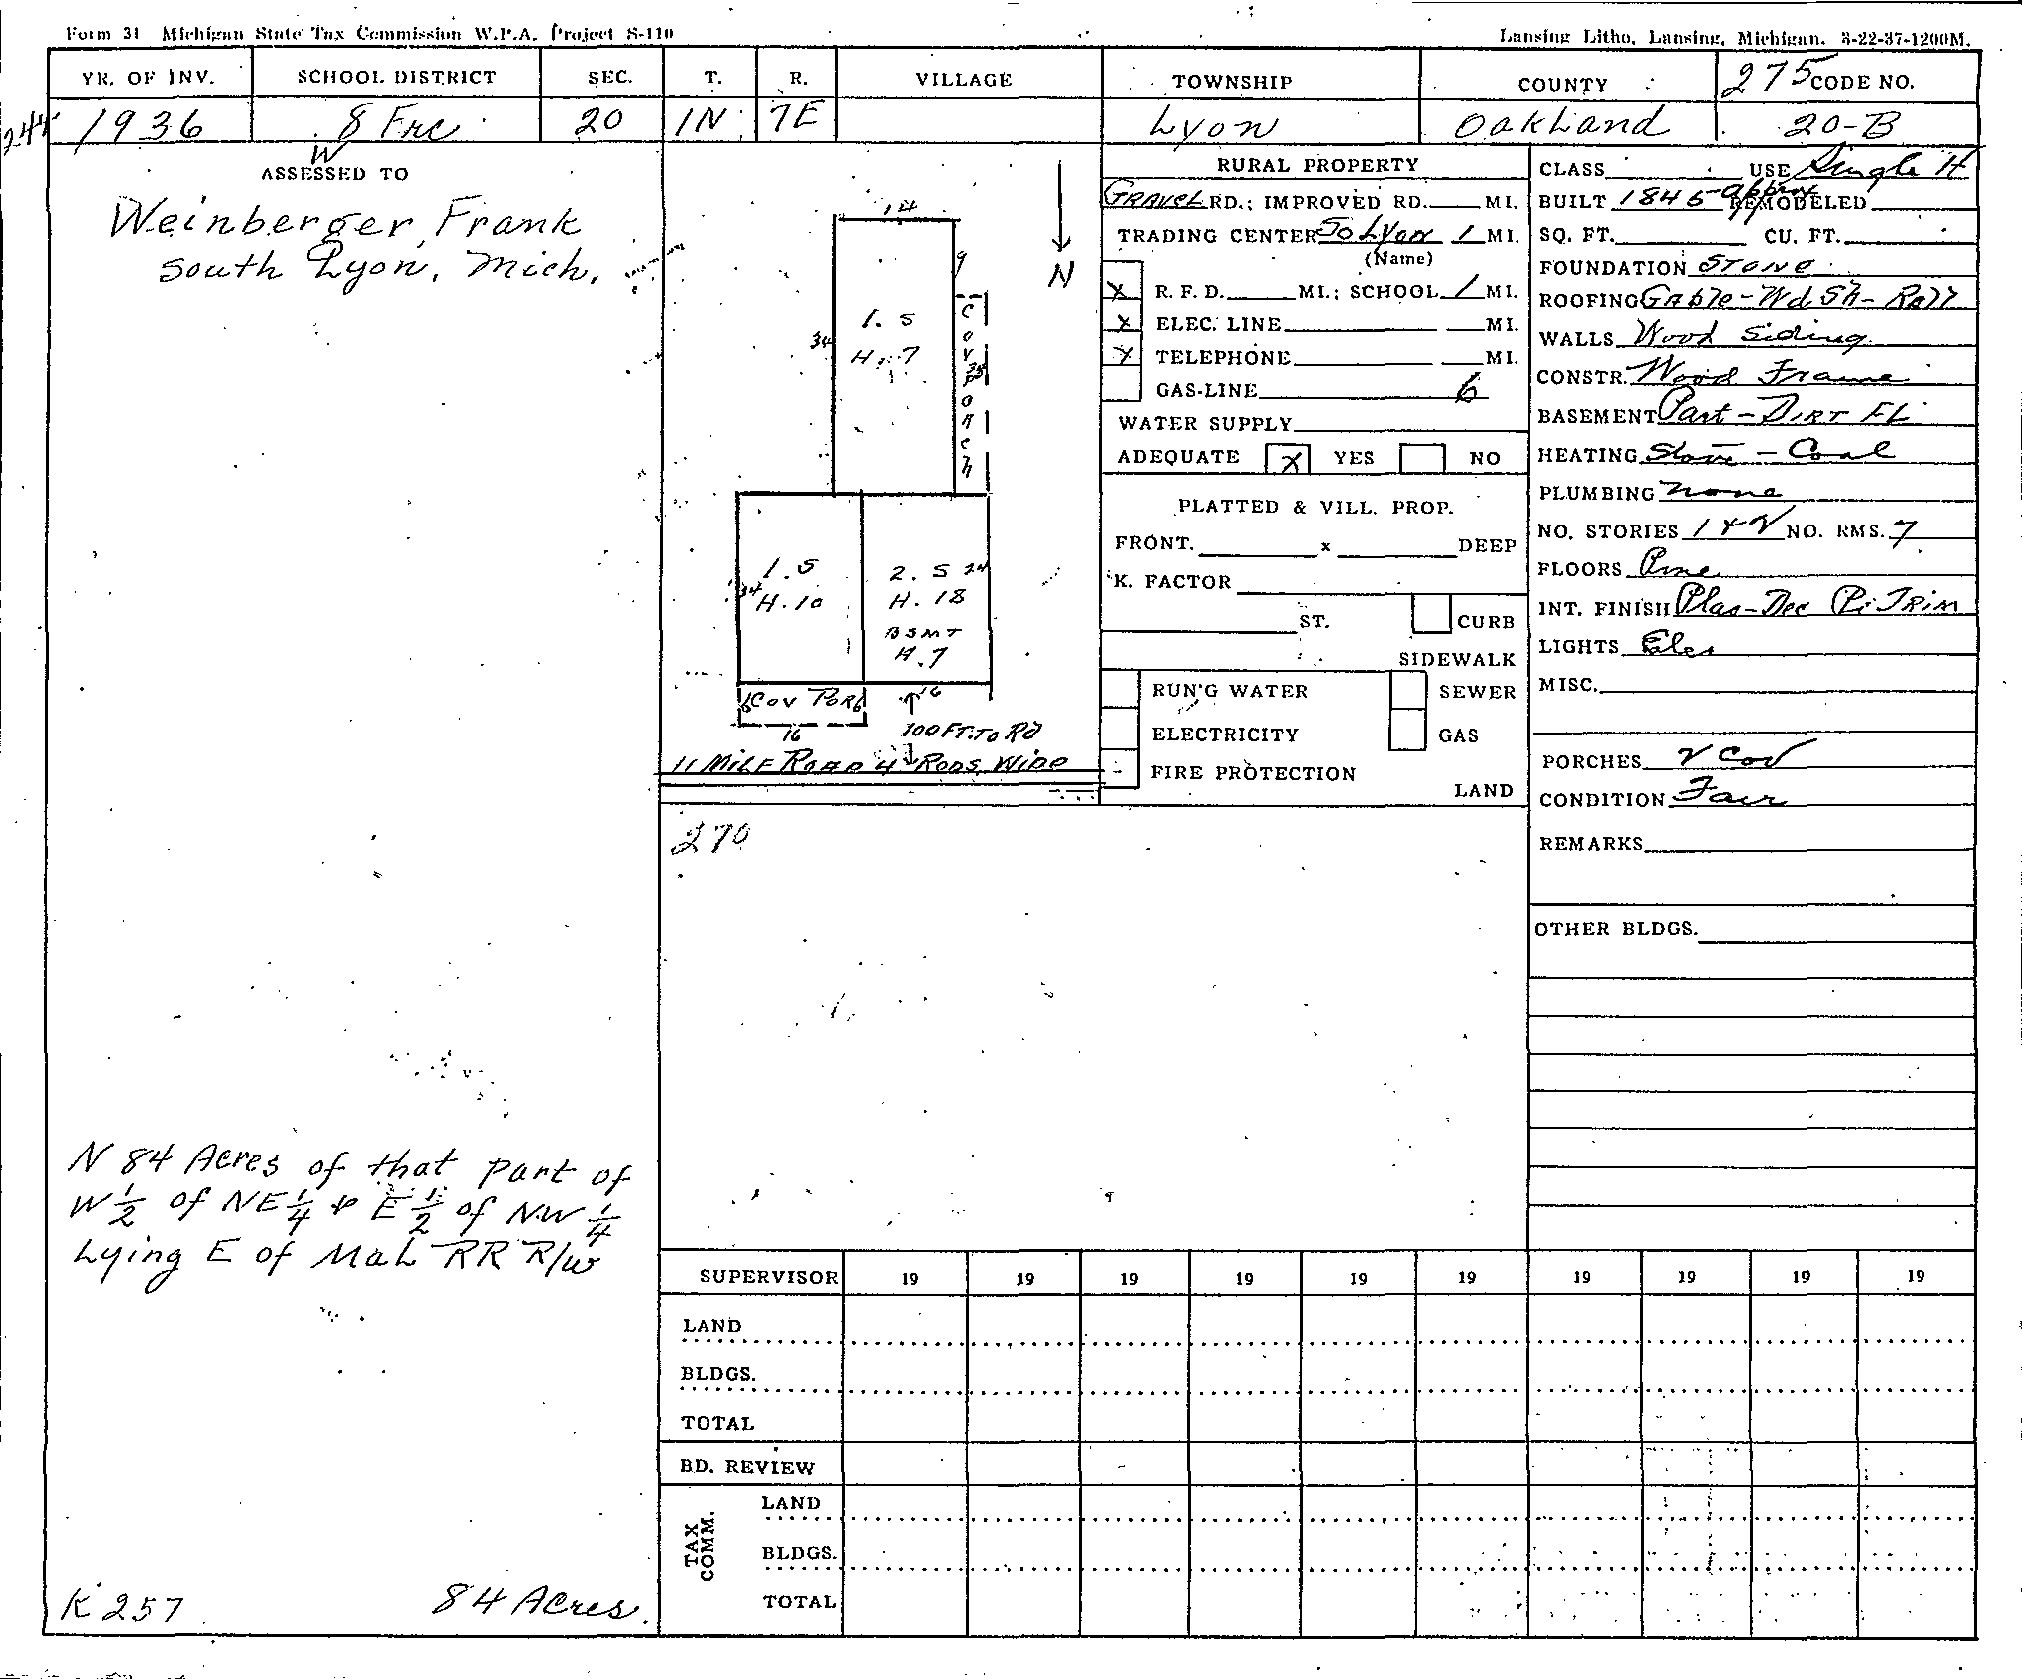 Form 31 Michigan State Tax Commission W.P.A. Project S-110
Lansing Litho, Lansing, Michigan. 3-22-37-1200M.
YR. OF INV. SCHOOL DISTRICT SEC. T. R. VILLAGE TOWNSHIP COUNTY 275 CODE NO.
244 1936 8 Frc 20 1N 7E Lyon Oakland 20-B
W
ASSESSED TO
Weinberger, Frank
South Lyon, Mich.
N 84 Acres of that part of
W 1/2 of NE 1/4 & E 1/2 of NW 1/4
Lying E of Mal RR R/W
K 257 84 Acres.
14
9
N
1. S
H. 7
34
COV PORCH
25
1. S
H. 10
24
2. S 24
H. 18
BSMT
H. 7
6 COV POR 6
16
16
100 FT. TO RD
11 MILE ROAD 4 RODS WIDE
270
RURAL PROPERTY
GRAVEL RD.; IMPROVED RD. MI.
TRADING CENTER So Lyon 1 MI.
(Name)
X R. F. D. MI.; SCHOOL 1 MI.
X ELEC. LINE MI.
X TELEPHONE MI.
GAS-LINE 6
WATER SUPPLY
ADEQUATE X YES NO
PLATTED & VILL. PROP.
FRONT. x DEEP
K. FACTOR
ST. CURB
SIDEWALK
RUN'G WATER SEWER
ELECTRICITY GAS
FIRE PROTECTION
LAND
CLASS USE Single H
BUILT 1845 approx REMODELED
SQ. FT. CU. FT.
FOUNDATION STONE
ROOFING Gable-Wd Sh-Roll
WALLS Wood Siding
CONSTR. Wood Frame
BASEMENT Part-DIRT FL
HEATING Stove - Coal
PLUMBING None
NO. STORIES 1 & 2 NO. RMS. 7
FLOORS Pine
INT. FINISH Plas-Dec Pi TRIM
LIGHTS Elec
MISC.
PORCHES 2 Cov
CONDITION Fair
REMARKS
OTHER BLDGS.
SUPERVISOR 19 19 19 19 19 19 19 19 19 19
LAND
BLDGS.
TOTAL
BD. REVIEW
TAX COMM.
LAND
BLDGS.
TOTAL